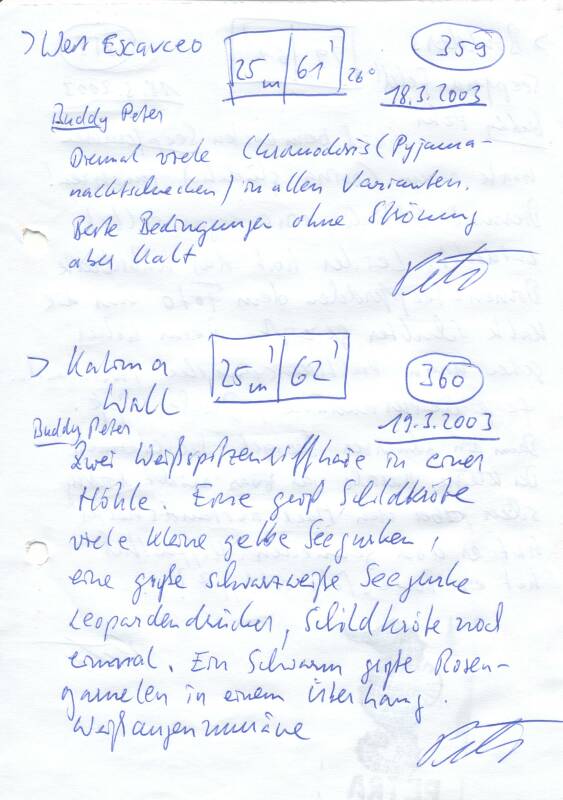 > West Escarceo
25 m | 61' 26°
359
18.3.2003
Buddy Peter
Diesmal viele Chromodoris (Pyjama-
nacktschnecken) in allen Varianten.
Beste Bedingungen ohne Strömung
aber kalt
> Kalima
Wall
25 m' | 62'
360
19.3.2003
Buddy Peter
Zwei Weißspitzenriffhaie in einer
Höhle. Eine groß Schildkröte
viele kleine gelbe Seegurken,
eine große schwarzweiße Seegurke
Leopardendrücker, Schildkröte noch
einmal. Ein Schwarm größte Rosen-
garnelen in einem Überhang.
Weißaugenmuräne